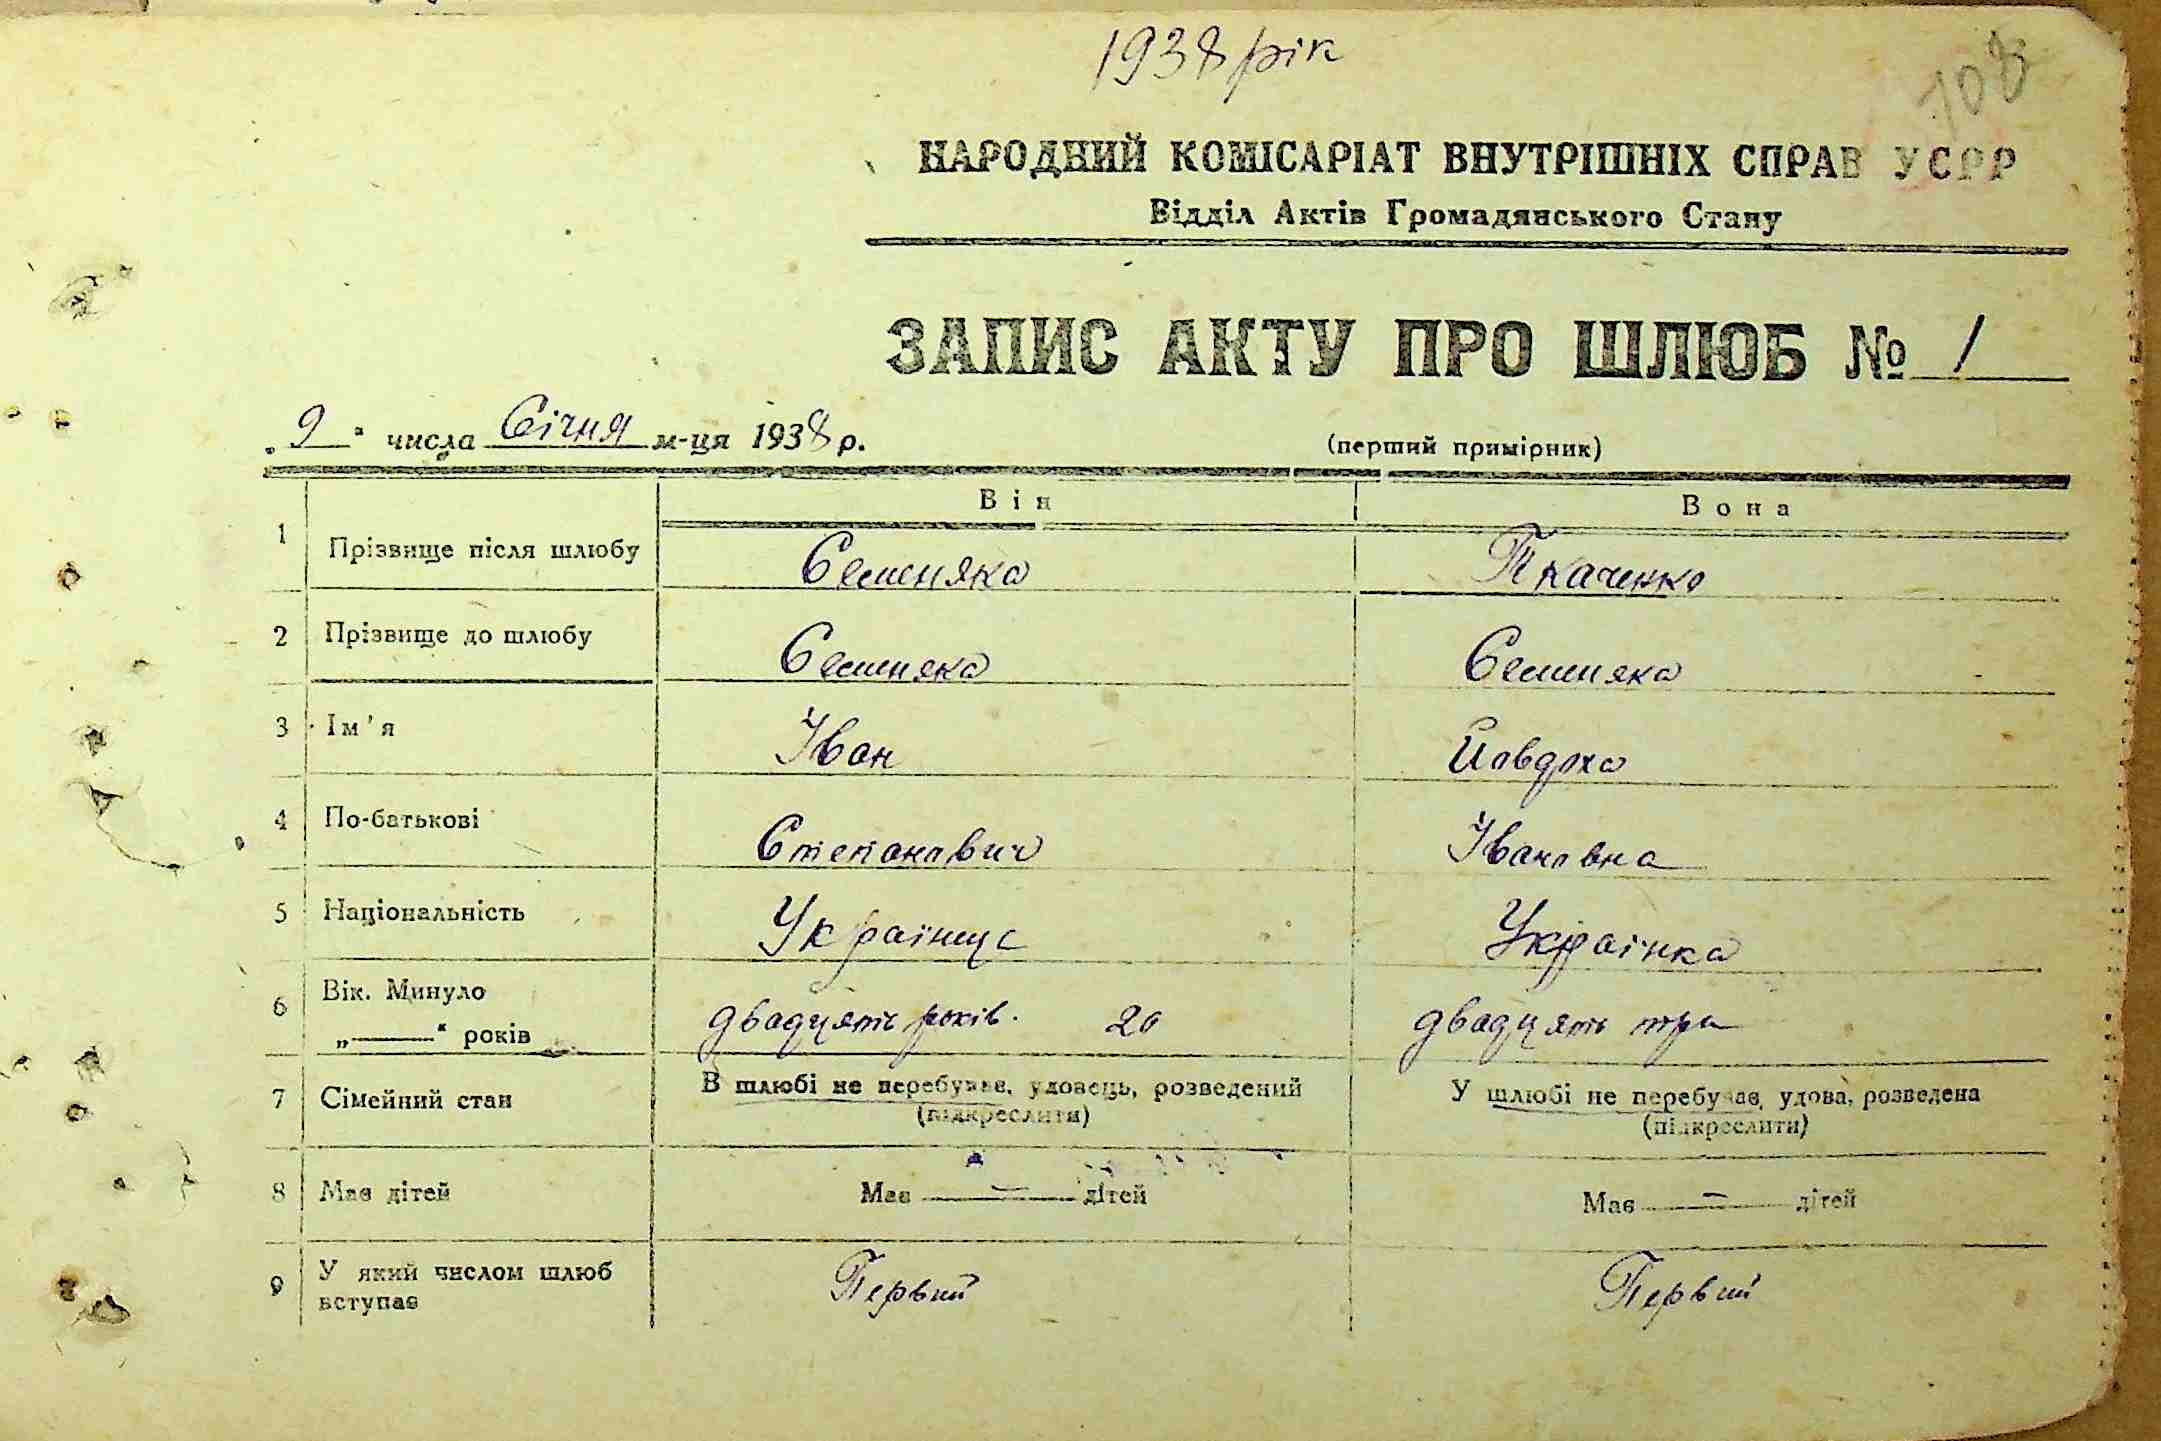 1938 рік
108
НАРОДНИЙ КОМІСАРІАТ ВНУТРІШНІХ СПРАВ УСРР
Відділ Актів Громадянського Стану
ЗАПИС АКТУ ПРО ШЛЮБ № 1
„9“ числа Січня м-ця 1938 р.
(перший примірник)
Він Вона
1 Прізвище після шлюбу Семеняка Ткаченко
2 Прізвище до шлюбу Семеняка Семеняка
3 Ім'я Іван Йовдоха
4 По-батькові Степанович Івановна
5 Національність Українец Українка
6 Вік. Минуло „——“ років двадцять років. 20 двадцять три
7 Сімейний стан В шлюбі не перебуває, удовець, розведений (підкреслити) У шлюбі не перебуває, удова, розведена (підкреслити)
8 Має дітей Має — дітей Має — дітей
9 У який числом шлюб вступає Первий Первий